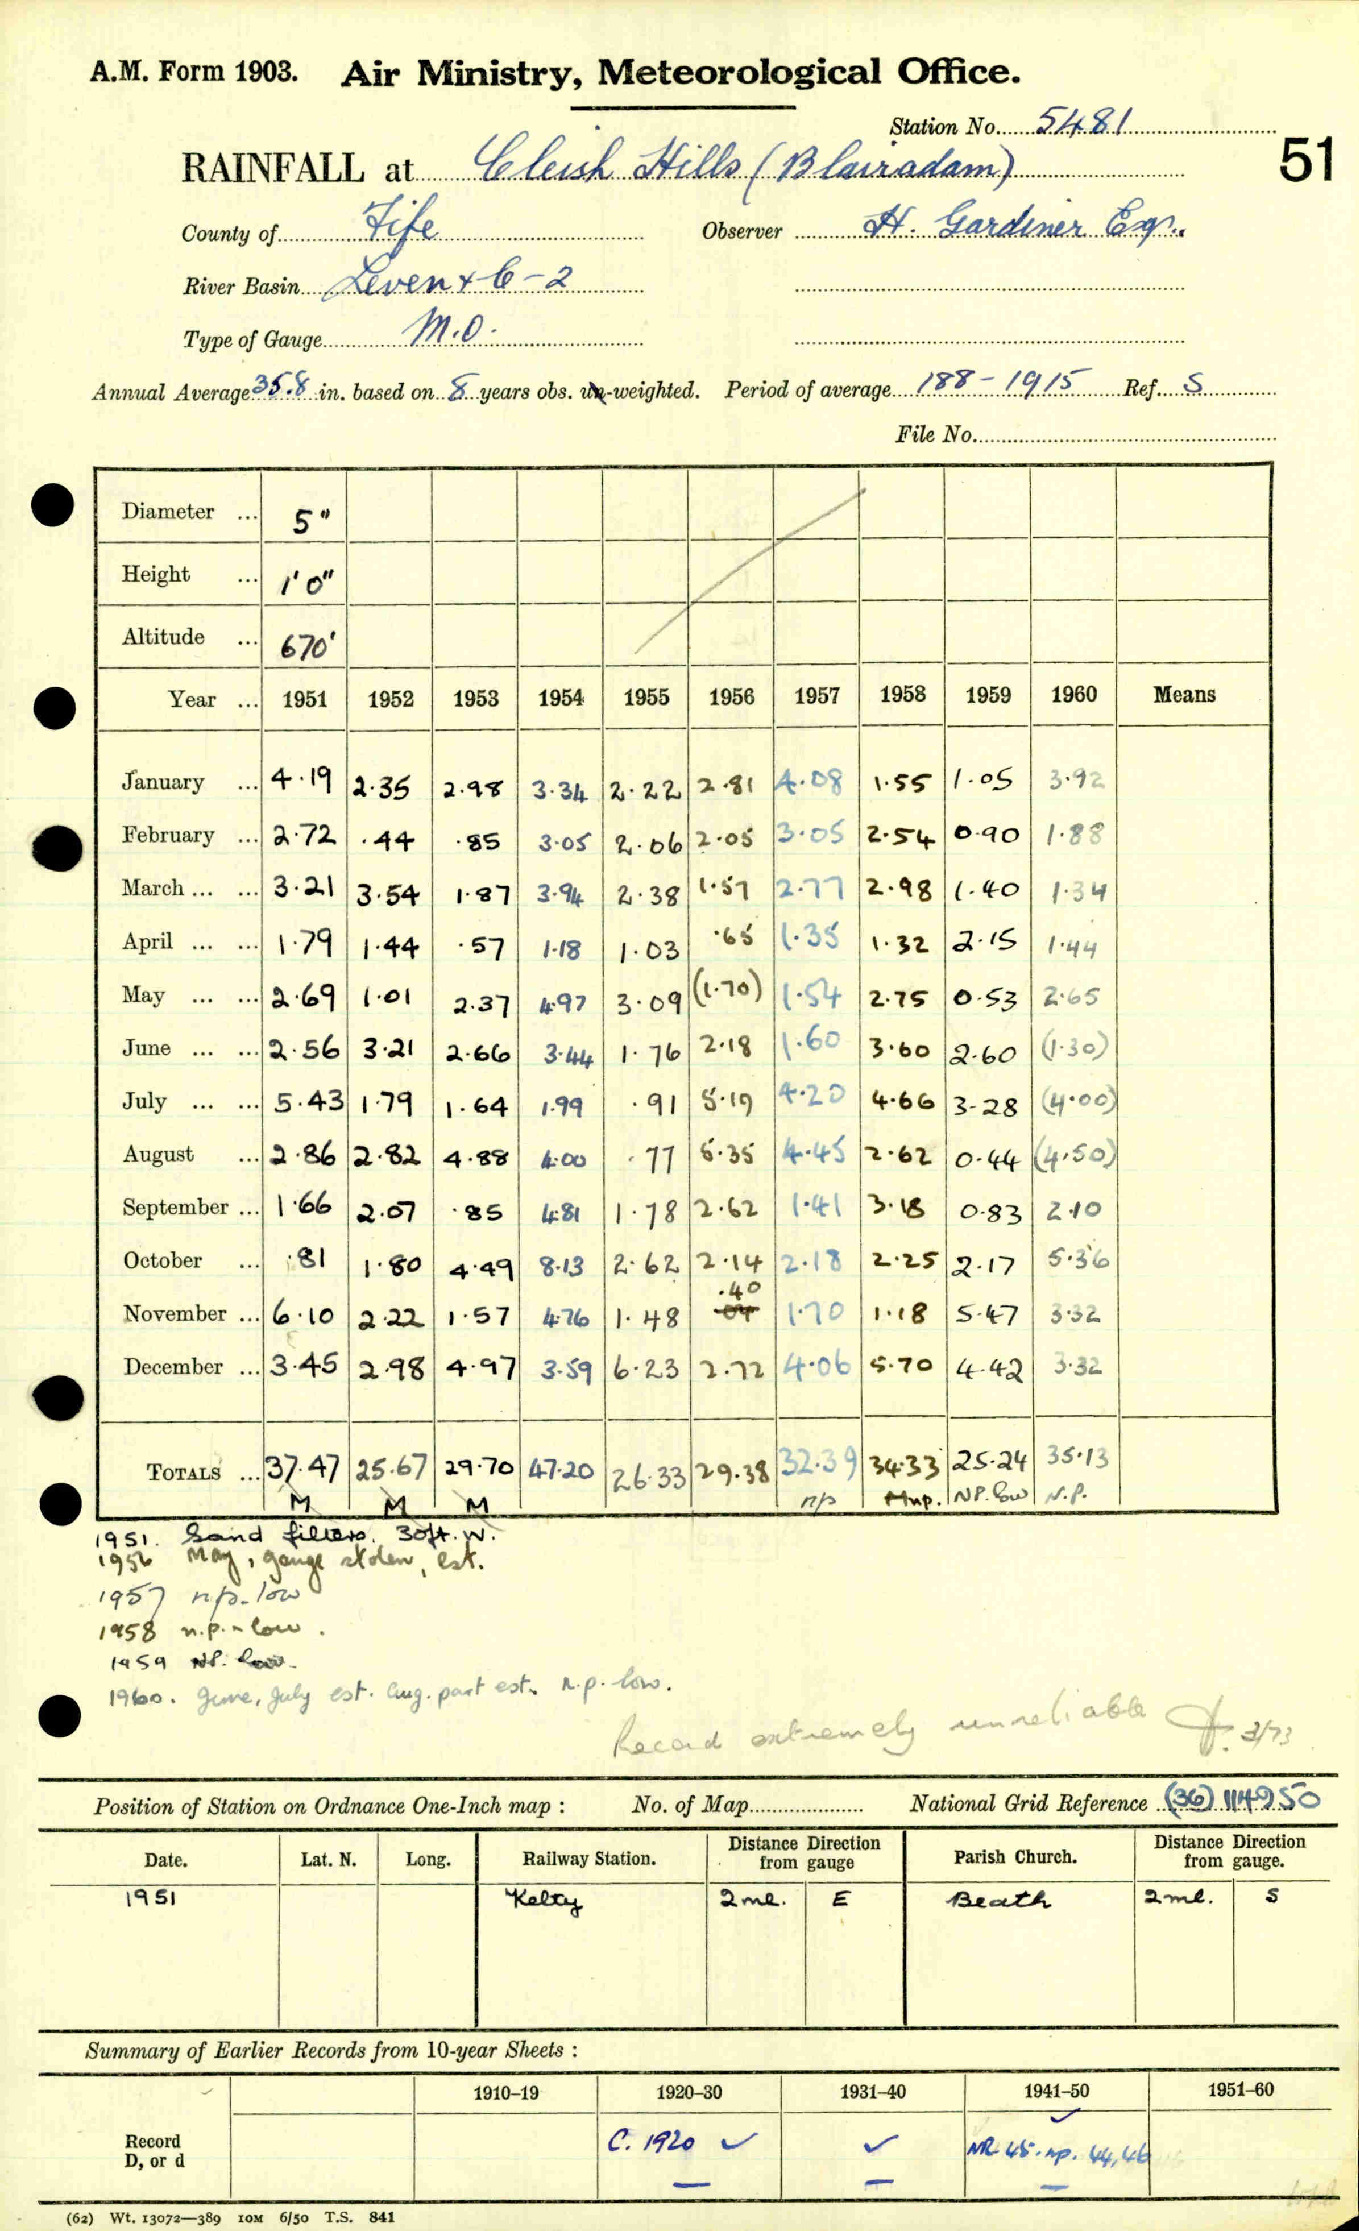 A.M. Form 1903. Air Ministry, Meteorological Office.
Station No. 5481
51
RAINFALL at Cleish Hills (Blairadam)
County of Fife Observer H. Gardiner Esq.
River Basin Leven + C-2
Type of Gauge M.O.
Annual Average 35.8 in. based on 8 years obs. un-weighted. Period of average 188 - 1915 Ref. S
File No.
Diameter ... 5"
Height ... 1'0"
Altitude ... 670'
Year ... 1951 1952 1953 1954 1955 1956 1957 1958 1959 1960 Means
January ... 4.19 2.35 2.98 3.34 2.22 2.81 4.08 1.55 1.05 3.92
February ... 2.72 .44 .85 3.05 2.06 2.05 3.05 2.54 0.90 1.88
March ... ... 3.21 3.54 1.87 3.94 2.38 1.57 2.77 2.98 1.40 1.34
April ... ... 1.79 1.44 .57 1.18 1.03 .65 1.35 1.32 2.15 1.44
May ... ... 2.69 1.01 2.37 4.97 3.09 (1.70) 1.54 2.75 0.53 2.65
June ... ... 2.56 3.21 2.66 3.44 1.76 2.18 1.60 3.60 2.60 (1.30)
July ... ... 5.43 1.79 1.64 1.99 .91 5.19 4.20 4.66 3.28 (4.00)
August ... 2.86 2.82 4.88 4.00 .77 5.35 4.45 2.62 0.44 (4.50)
September ... 1.66 2.07 .85 4.81 1.78 2.62 1.41 3.18 0.83 2.10
October ... .81 1.80 4.49 8.13 2.62 2.14 2.18 2.25 2.17 5.36
.40
November ... 6.10 2.22 1.57 4.76 1.48 04 1.70 1.18 5.47 3.32
December ... 3.45 2.98 4.97 3.59 6.23 2.72 4.06 5.70 4.42 3.32
TOTALS ... 37.47 25.67 29.70 47.20 26.33 29.38 32.39 34.33 25.24 35.13
M M M np np. NP. low N.P.
1951. Sand filters. 30ft. W.
1956 May, gauge stolen, est.
1957 n/p. low
1958 n.p. - low.
1959 NP. low.
1960. June, July est. Aug. part est. n.p. low.
Record extremely unreliable 3/73
Position of Station on Ordnance One-Inch map : No. of Map National Grid Reference (36) 114950
Date. Lat. N. Long. Railway Station. Distance from gauge Direction Parish Church. Distance Direction from gauge.
1951 Kelty 2ml. E Beath 2ml. S
Summary of Earlier Records from 10-year Sheets :
1910–19 1920–30 1931–40 1941–50 1951–60
Record D, or d C. 1920 ✓ ✓ ✓ NR 45. np. 44,46
(62) Wt. 13072—389 10M 6/50 T.S. 841